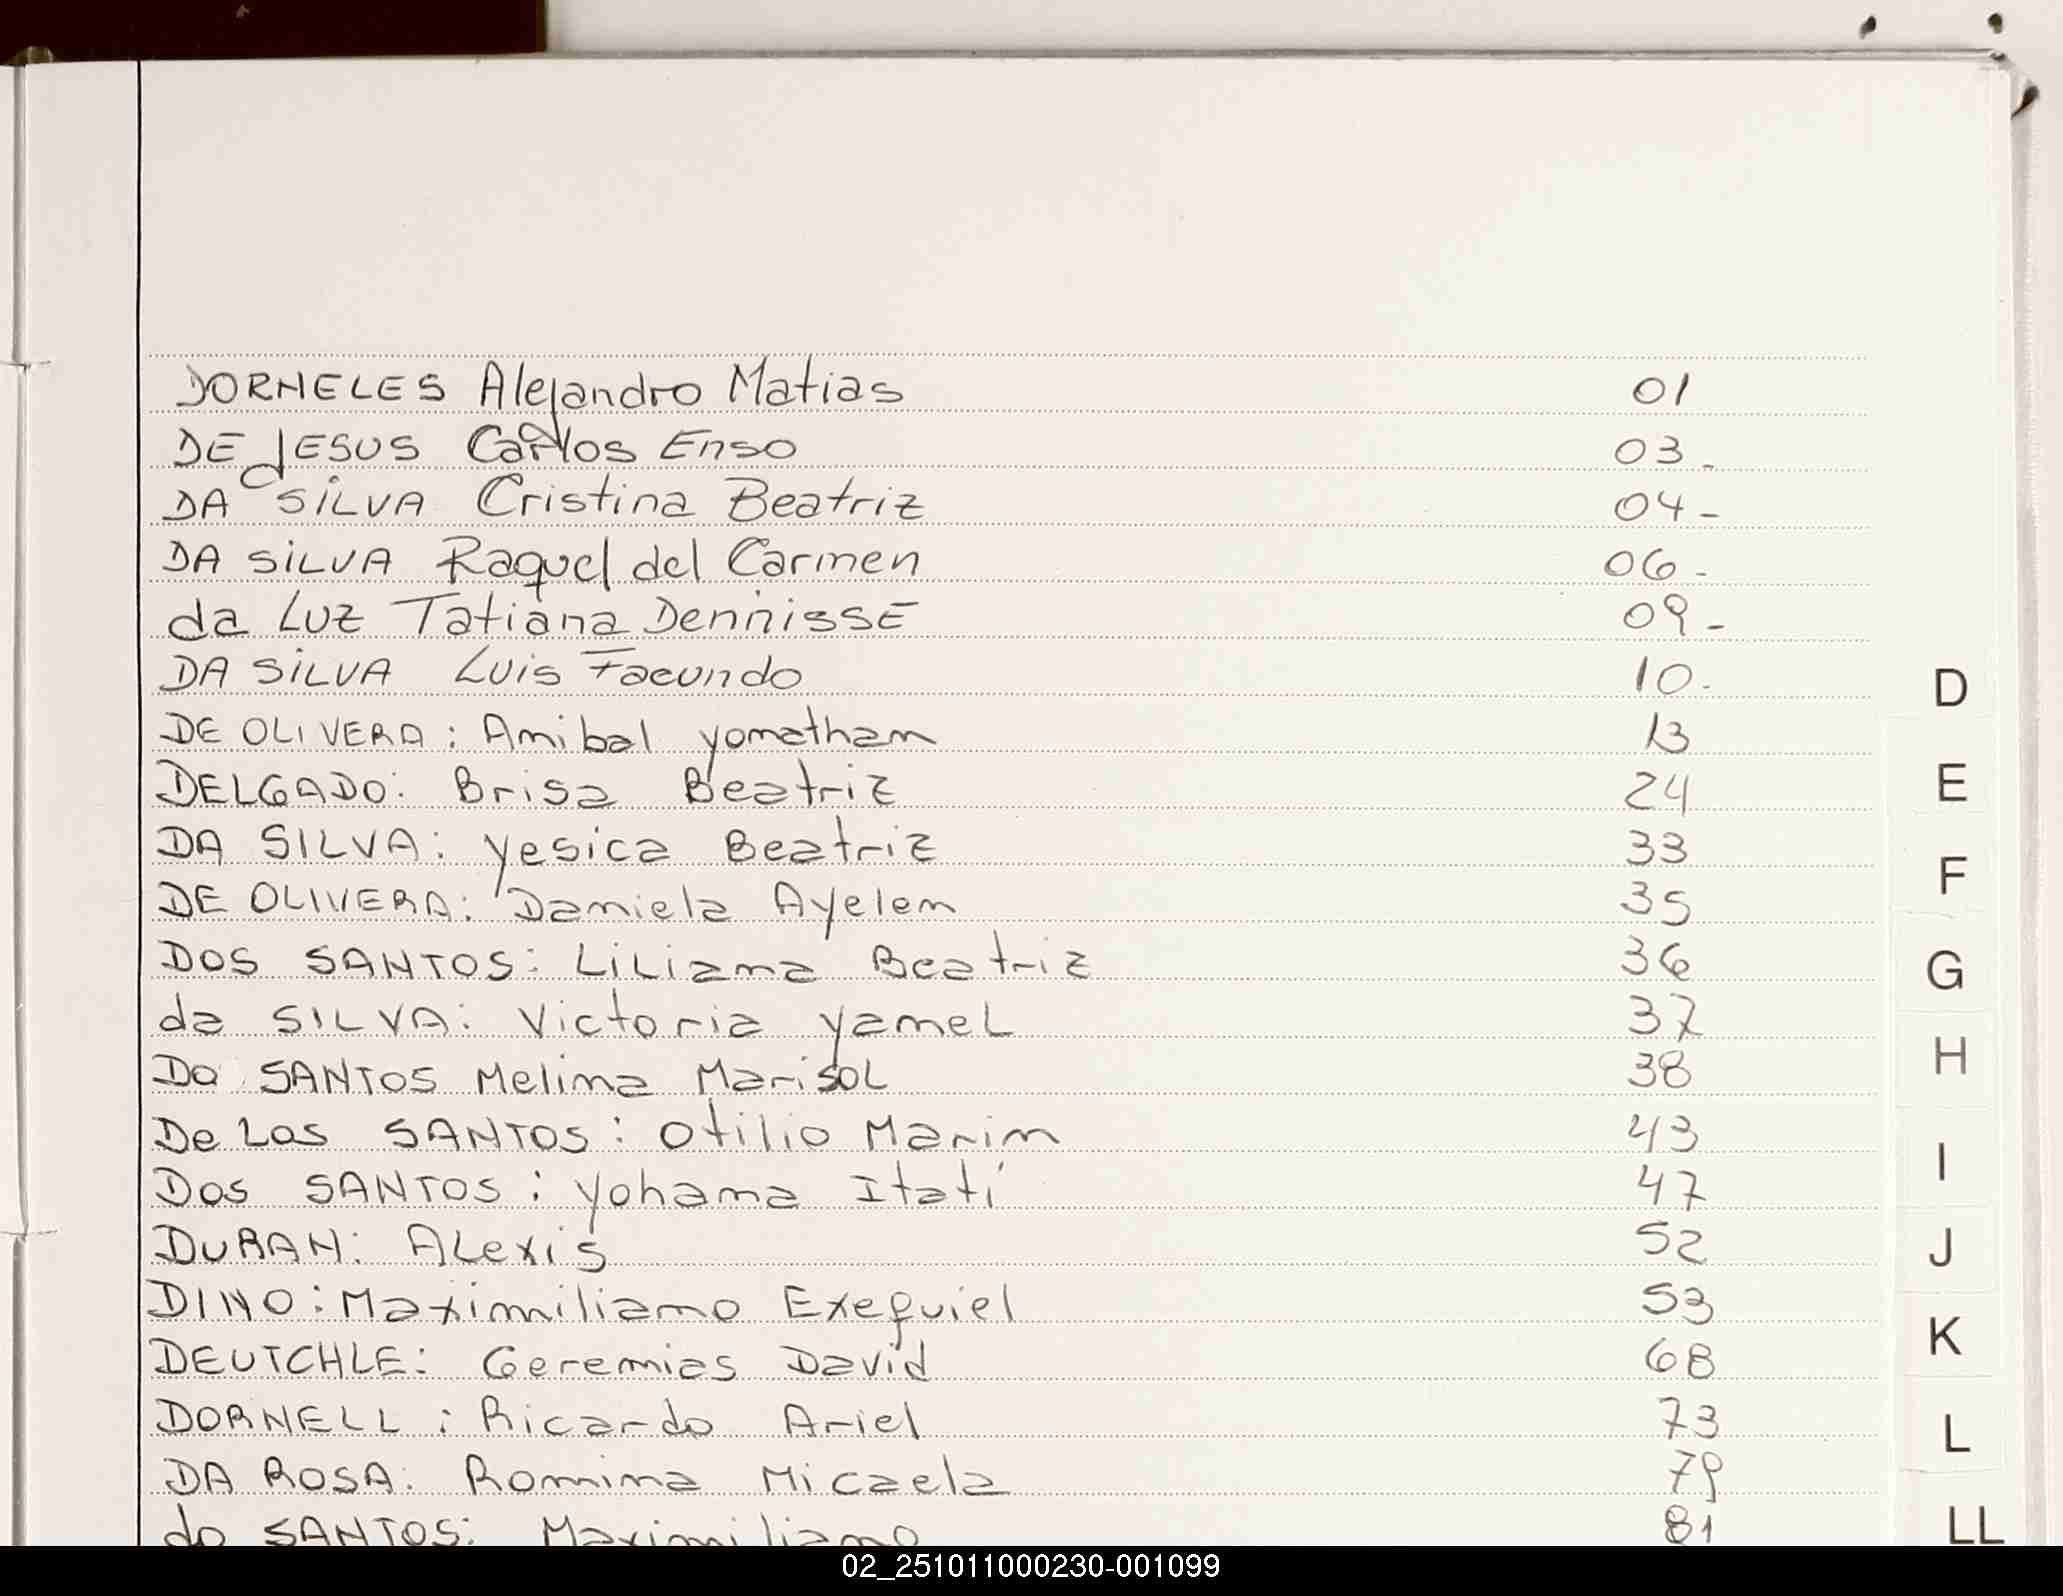 DORNELES Alejandro Matias 01
DE JESUS Carlos Enso 03-
DA SiLVA Cristina Beatriz 04-
DA SiLVA Raquel del Carmen 06-
da Luz Tatiana DennissE 09-
DA SiLVA Luis Facundo 10-
DE OLIVERA: Anibal yonathan 13
DELGADO: Brisa Beatriz 24
DA SILVA: Yesica Beatriz 33
DE OLIVERA: Daniela Ayelen 35
DOS SANTOS: LiLiana Beatriz 36
da SILVA: Victoria YameL 37
Do SANTOS Melina MarisoL 38
De Los SANTOS: Otilio Marin 43
Dos SANTOS: Yohana Itatí 47
DURAN: ALexis 52
DINO: Maximiliano Exequiel 53
DEUTCHLE: Geremias David 68
DORNELL: Ricardo Ariel 73
DA ROSA: Romina Micaela 79
do SANTOS: Maximiliano 81
D
E
F
G
H
I
J
K
L
LL
02_251011000230-001099